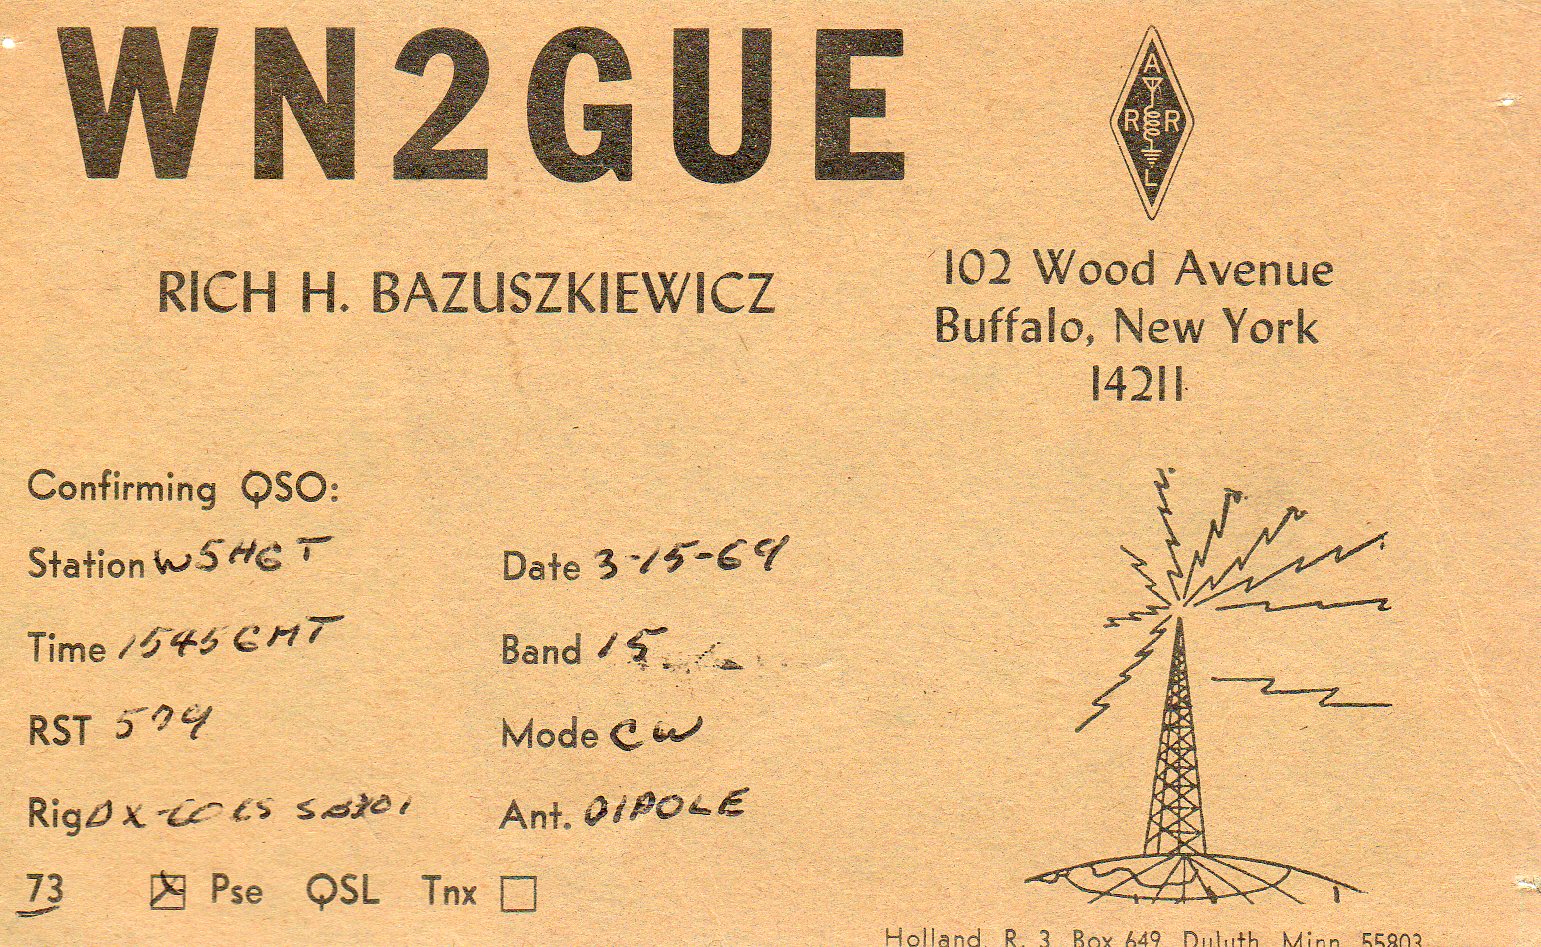 WN2GUE
A
R R
L
RICH H. BAZUSZKIEWICZ
102 Wood Avenue
Buffalo, New York
14211
Confirming QSO:
Station W5HGT Date 3-15-69
Time 1545 GMT Band 15
RST 579 Mode CW
Rig DX-60 Ant. DIPOLE
73 Pse QSL Tnx
Holland, R. 3, Box 649, Duluth, Minn. 55803